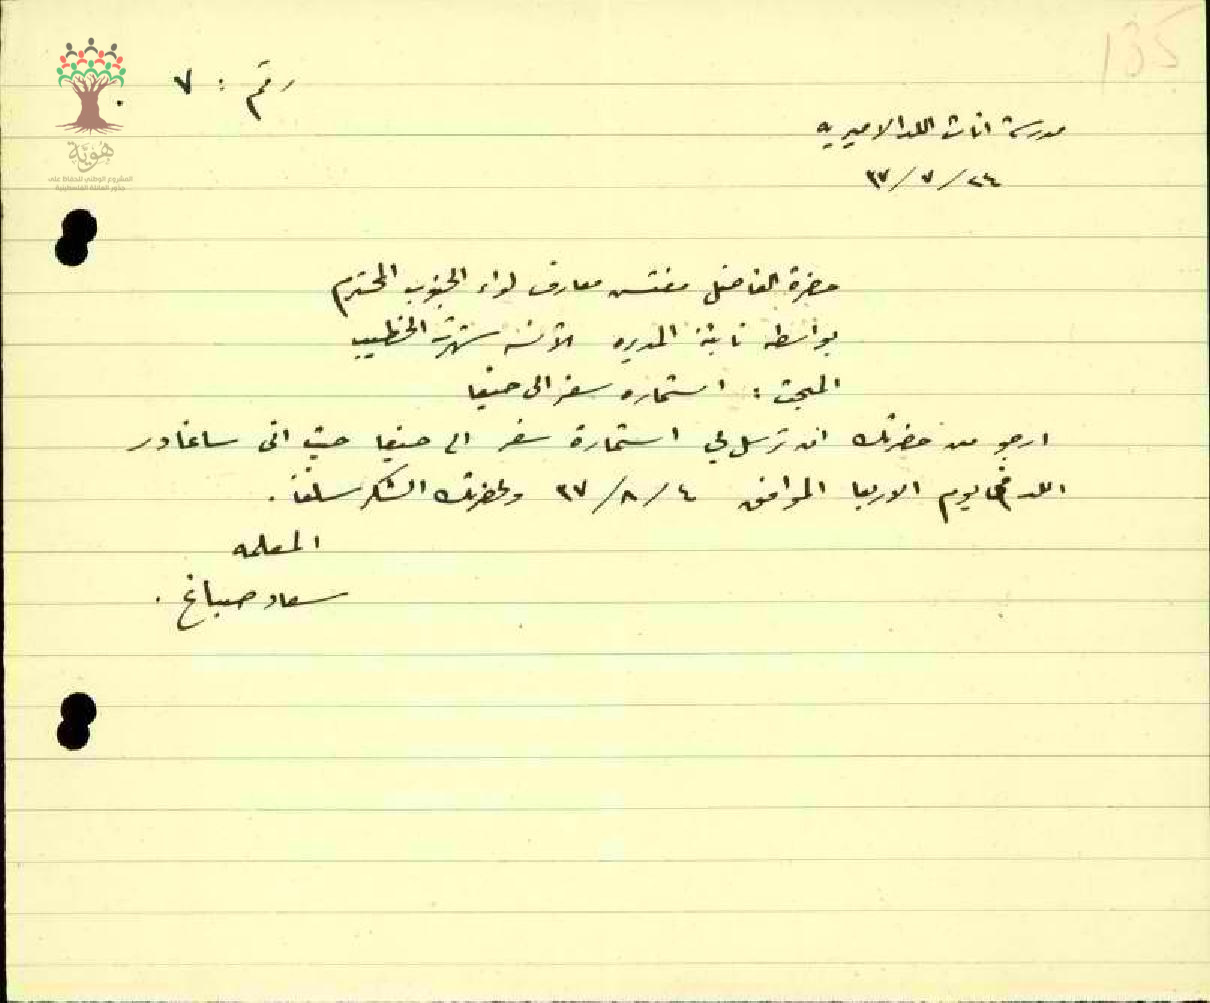 135
رقم : ٧
مدرسة اناث اللد الاميريه
٢٤ / ٧ / ٣٧
حضرة الفاضل مفتش معارف لواء الجنوب المحترم
بواسطة نائبة المديره الآنسه شهرت الخطيب
المبحث : استماره سفر الى حيفا
ارجو من حضرتك ان ترسل لي استمارة سفر الى حيفا حيث اني ساغادر
اللد في يوم الاربعا الموافق ٤ / ٨ / ٣٧ ولحضرتك الشكر سلفاً .
المعلمه
سعاد صباغ .
هُوِيَّة
المشروع الوطني للحفاظ على
جذور العائلة الفلسطينية